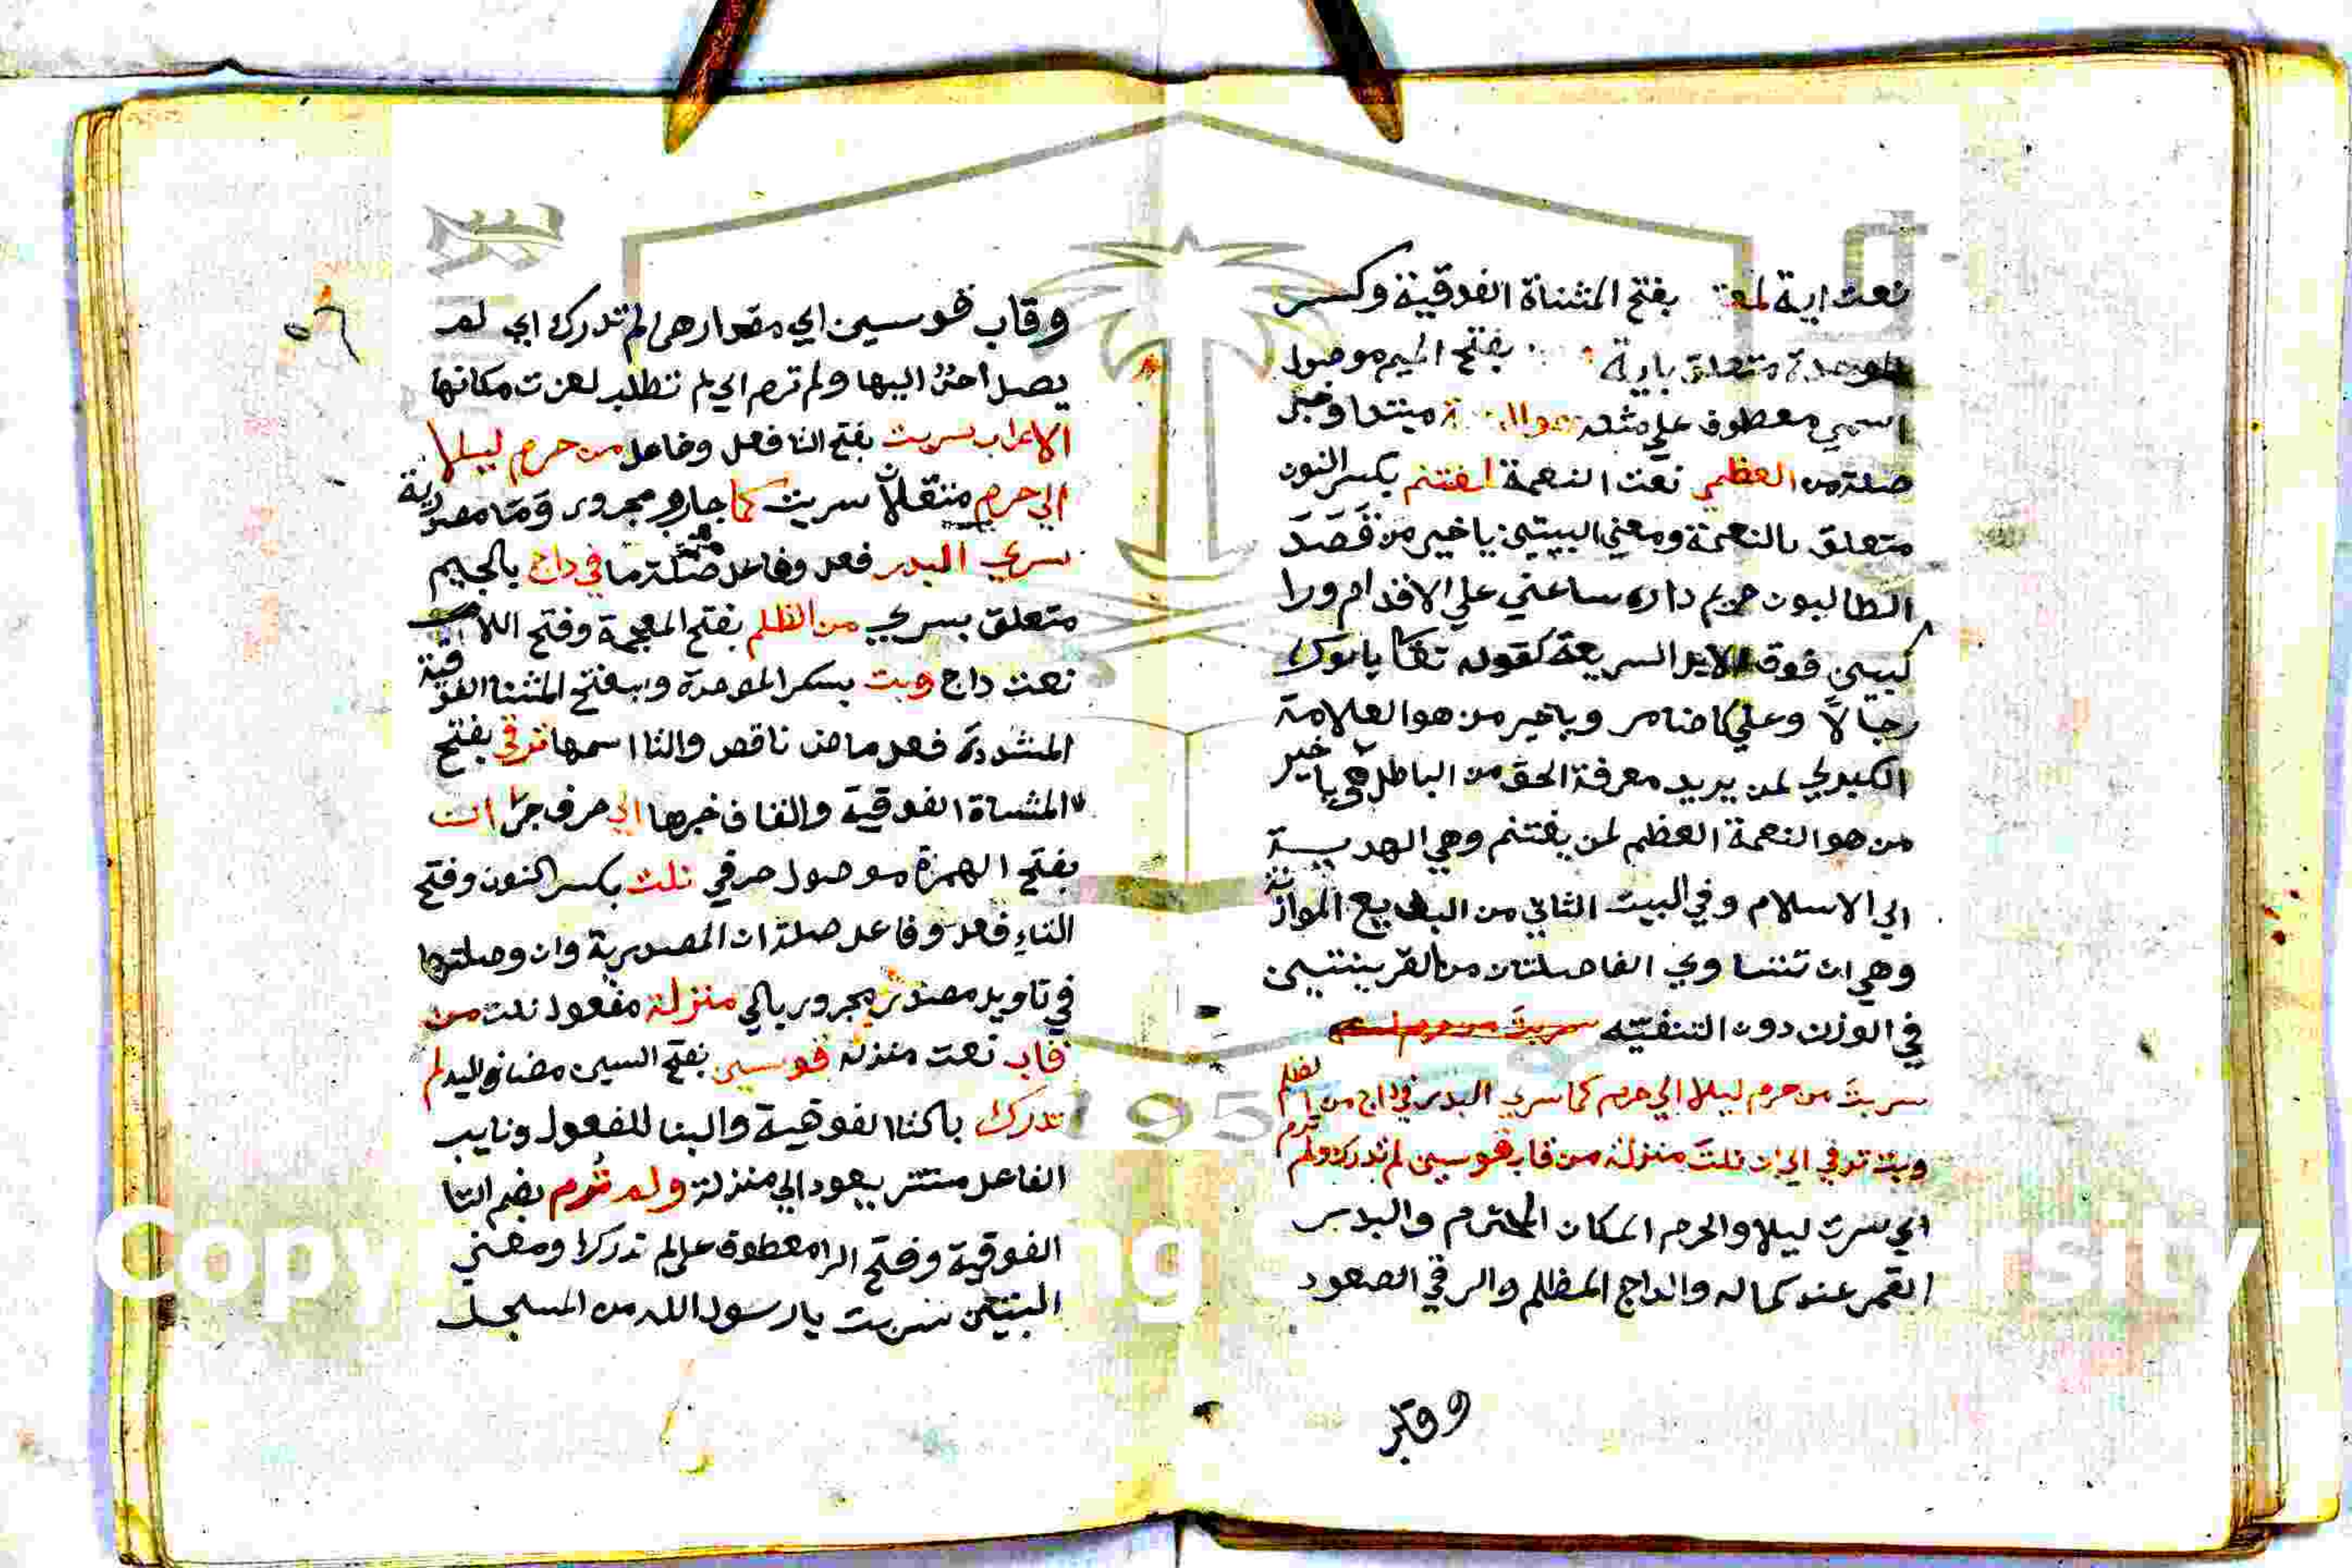 نعت اية لمعتبر بفتح المثناة الفوقية وكسر
الموحدة متعلق باية بفتح الميم موصول
اسمي معطوف علي مثله هو النعمة مبتدا وخبر
صلة من العظمي نعت النعمة لمغتنم بكسر النون
متعلق بالنعمة ومعني البيتين يا خير من قَصَدَ
الطالبون حريم داره ساعني علي الاقدام ورا
كبين فوق الابل السريعة كقوله تعا ياتوك
رجالاً وعلي كل ضامر وياخير من هو العلامة
الكبري لمن يريد معرفة الحق من الباطل ويا خير
من هو النعمة العظم لمن يغتنم وهي الهدية
الي الاسلام وفي البيت الثاني من البديع الموازنة
وهي ان تتساوي الفاصلتان من القرينتين
في الوزن دون التقفية
سريتَ من حرم ليلا الي حرم كما سري البدر في داج من الظلم
وبت ترقي الي ان نلتَ منزلة من قاب قوسين لم تدرك ولم ترم
اي سرت ليلا والحرم المكان المحترم والبدر
القمر عند كماله والداج المظلم والرقي الصعود
وقاب
٥٦
وقاب قوسين اي مقدارهما لم تدرك اي لم
يصل احدٌ اليها ولم ترم اي لم تطلب لعزت مكانها
الاعراب سريت بفتح التا فعل وفاعل من حرم ليلا
الي حرم متعلقان سريت كما جار ومجرور وَمَا مصدرية
سري البدر فعل وفاعل صلة ما في داج بالجيم
متعلق بسري من الظلم بفتح المعجمة وفتح اللام
نعت داج وبت بسكر الموحدة وبفتح المثنا الفوقية
المشددة فعل ماض ناقص والتا اسمها ترقي بفتح
المثناة الفوقية والقاف خبرها الي حرف جر ان
بفتح الهمزة موصول حرفي نلت بكسر النون وفتح
التاءِ فعل وفاعل صلة ان المصدرية وان وصلتها
في تاويل مصدر مجرور بالي منزلة مفعول نلت من
قاب نعت منزلة قوسين بفتح السين مضاف اليه لم
تدرك بالتا الفوقية والبنا للفعول ونايب
الفاعل مستتر يعود الي منزلة ولم تُرم بضم التا
الفوقية وفتح الرا معطوف علي لم تدرك ومعني
البيتين سريت يا رسول الله من المسجد